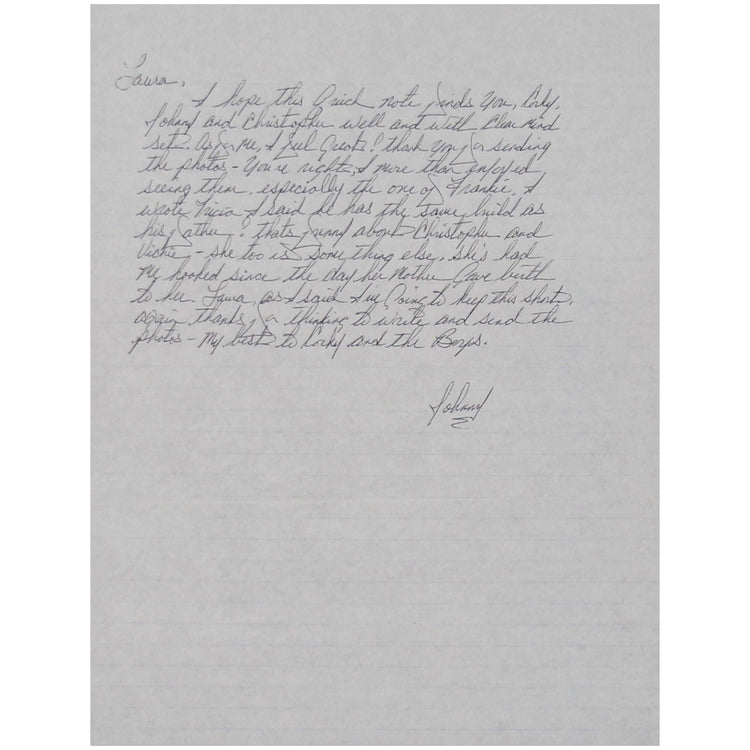 Laura,
I hope this Quick note finds You, Corky,
Johnny and Christopher well and with Clear mind
set. As for me, I feel Great! thank You for sending
the photos - You're right, I more than enjoyed
seeing them, especially the one of Frankie. I
wrote Tricia I said he has the same build as
his father? thats funny about Christopher and
Vickie - she too is something else, she's had
Me hooked since the day her Mother Gave birth
to her. Laura, as I said I'm Going to keep this short,
again thanks for thinking to write and send the
photos - My best to Corky and the Boys.
Johnny